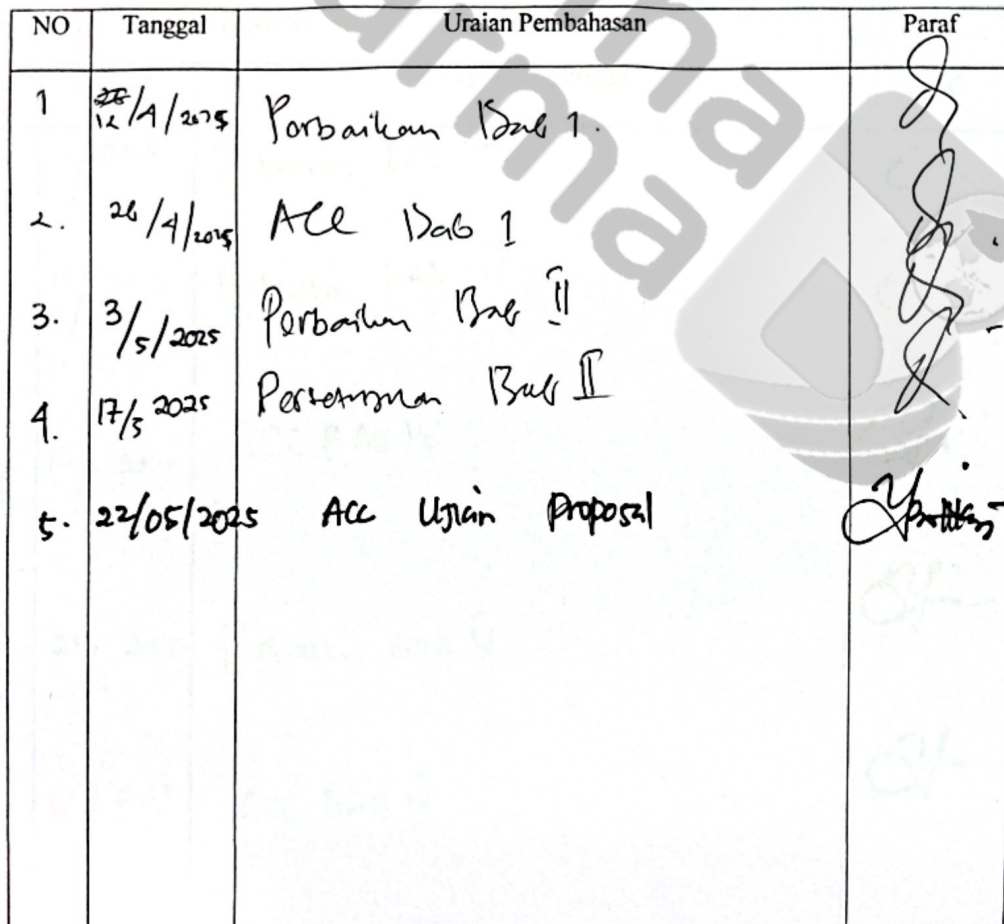 NO Tanggal Uraian Pembahasan Paraf
1 12/4/2025 Perbaikan Bab 1.
2. 26/4/2025 Acc Bab 1
3. 3/5/2025 Perbaikan Bab II
4. 17/5 2025 Persetujuan Bab II
5. 22/05/2025 Acc Ujian Proposal